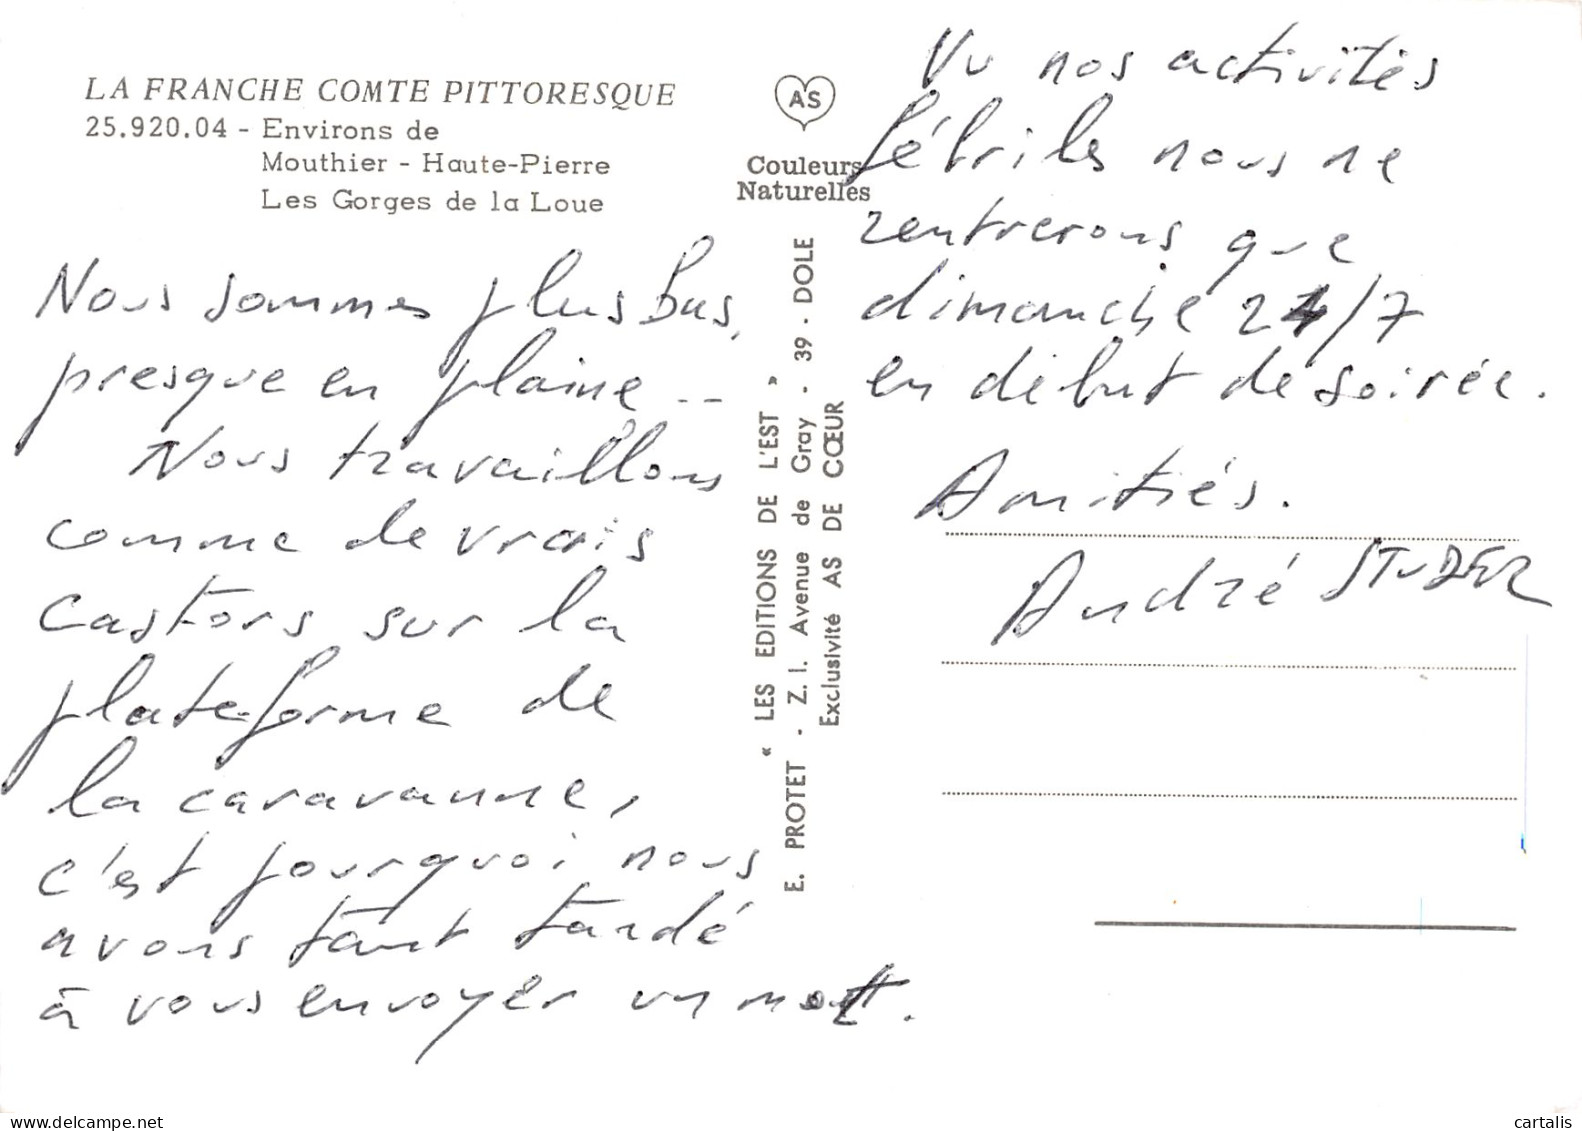 LA FRANCHE COMTE PITTORESQUE
25.920.04 - Environs de
Mouthier - Haute-Pierre
Les Gorges de la Loue
AS
Couleurs
Naturelles
Nous sommes plus bas,
presque en plaine --
Nous travaillons
comme de vrais
castors sur la
plate-forme de
la caravanne,
c'est pourquoi nous
avons tant tardé
à vous envoyer un mot.
« LES EDITIONS DE L'EST »
E. PROTET - Z. I. Avenue de Gray - 39 - DOLE
Exclusivité AS DE CŒUR
Vu nos activités
fébriles nous ne
rentrerons que
dimanche /7
en début de soirée.
Amitiés.
André STUDER
cartalis